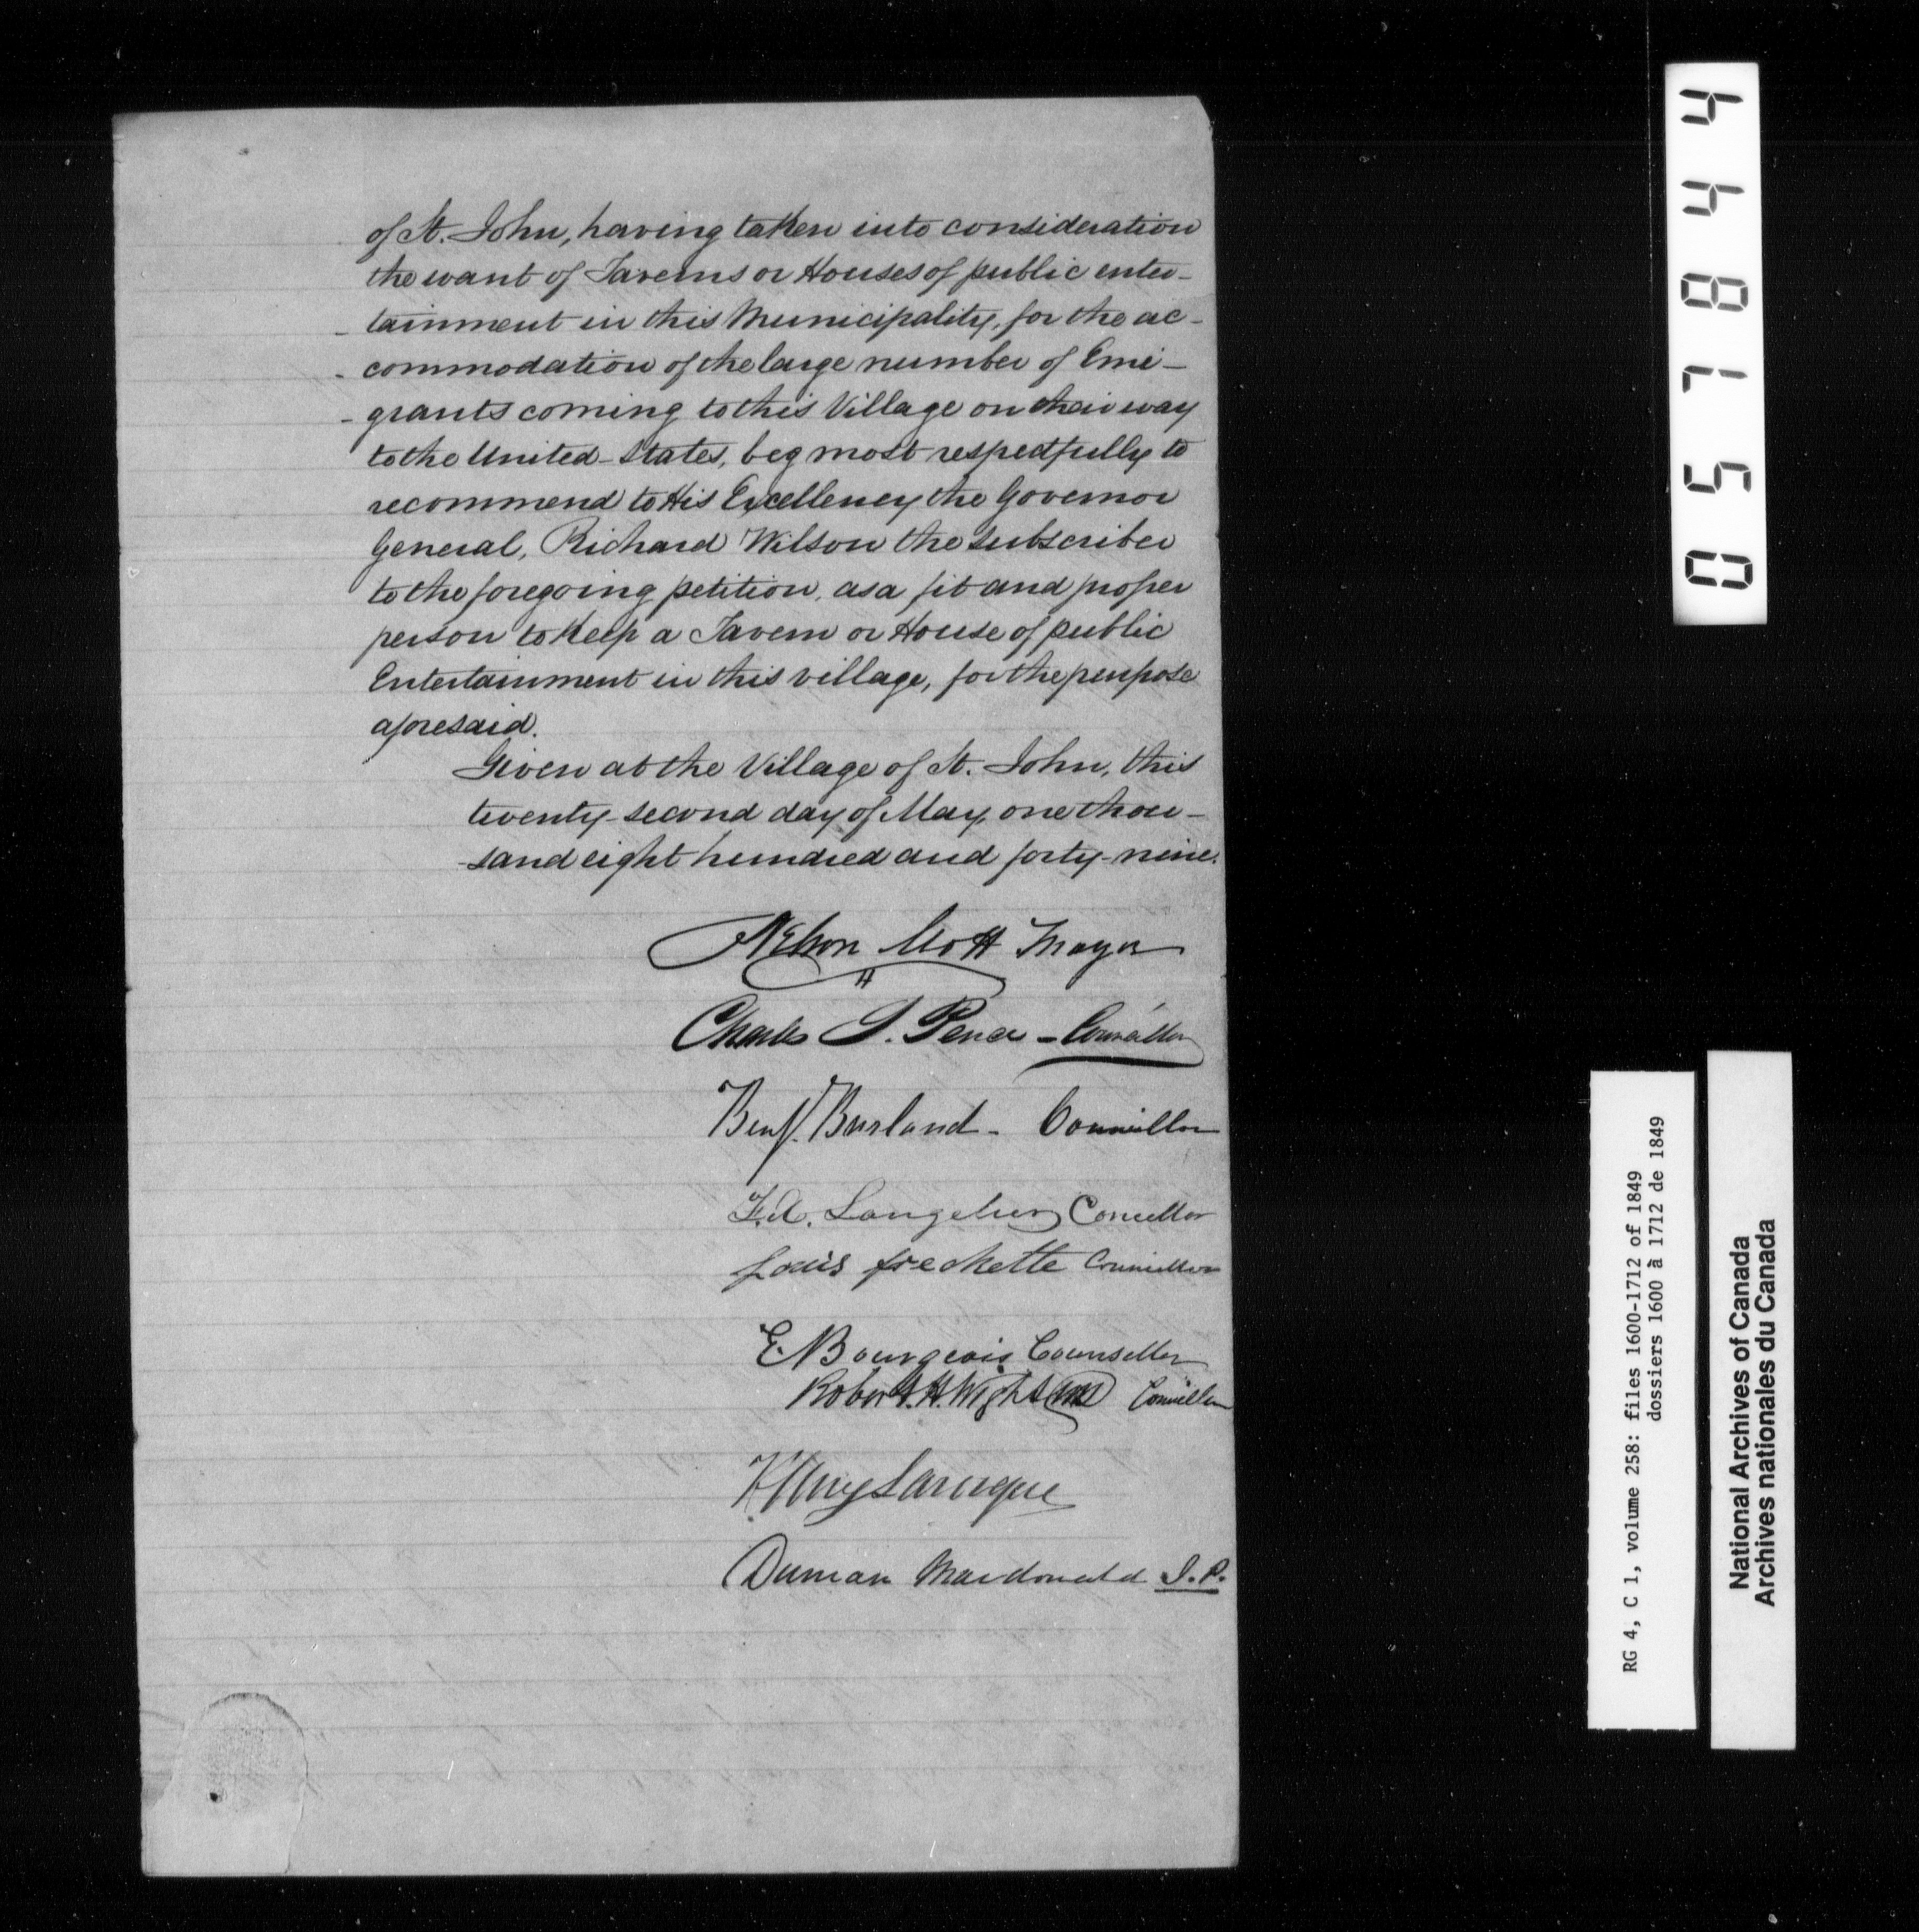 of St. John, having taken into consideration
the want of Taverns or Houses of public enter-
- tainment in this Municipality, for the ac-
- commodation of the large number of Emi-
- grants coming to this Village on their way
to the United States, beg most respectfully to
recommend to His Excellency the Governor
General, Richard Wilson the subscriber
to the foregoing petition, as a fit and proper
person to keep a Tavern or House of public
Entertainment in this village, for the purpose
aforesaid.
Given at the Village of St. John, this
twenty-second day of May, one thou-
-sand eight hundred and forty-nine.
Nelson Mott Mayor
Charles Pierce - Councillor
Benj. Burland - Councillor
F. A. Langelier Councillor
Louis frechette Councillor
E Bourgeois Counseller
Robert H. Wight Councillor
Larocque
Duncan Macdonald J.P.
057844
RG 4, C 1, volume 258: files 1600-1712 of 1849
dossiers 1600 à 1712 de 1849
National Archives of Canada
Archives nationales du Canada